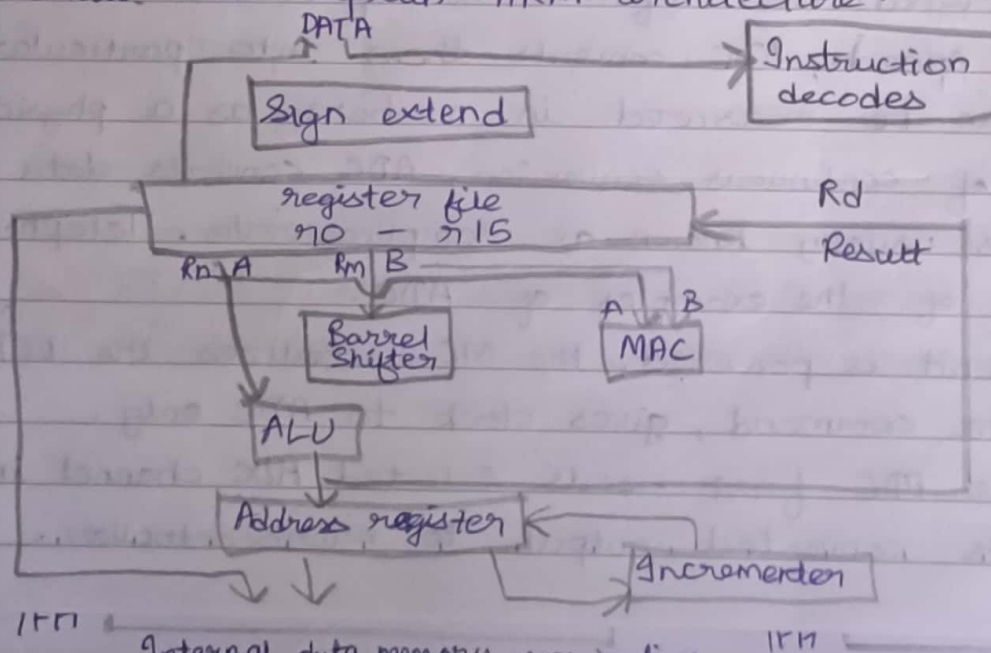 ARM architecture
DATA
Instruction
decodes
Sign extend
register file
r0 — r15
Rd
Result
Rn A
Rm B
A B
Barrel
Shifter
MAC
ALU
Address register
Incrementer